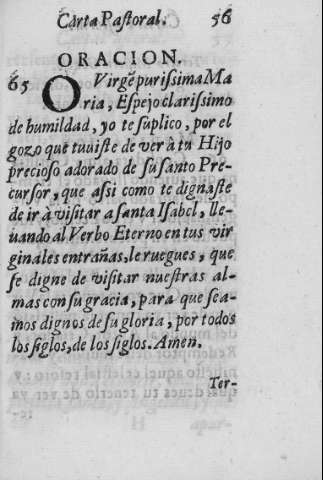 Carta Pastoral. 56
ORACION.
65 O Virgẽ purissima Ma
ria, Espejo clarissimo
de humildad, yo te suplico, por el
gozo que tuuiste de ver à tu Hijo
precioso adorado de su santo Pre-
cursor, que assi como te dignaste
de ir à visitar a santa Isabel, lle-
uando al Verbo Eterno en tus vir
ginales entrañas, le ruegues, que
se digne de visitar nuestras al-
mas con su gracia, para que sea-
mos dignos de su gloria, por todos
los siglos, de los siglos. Amen.
Ter-